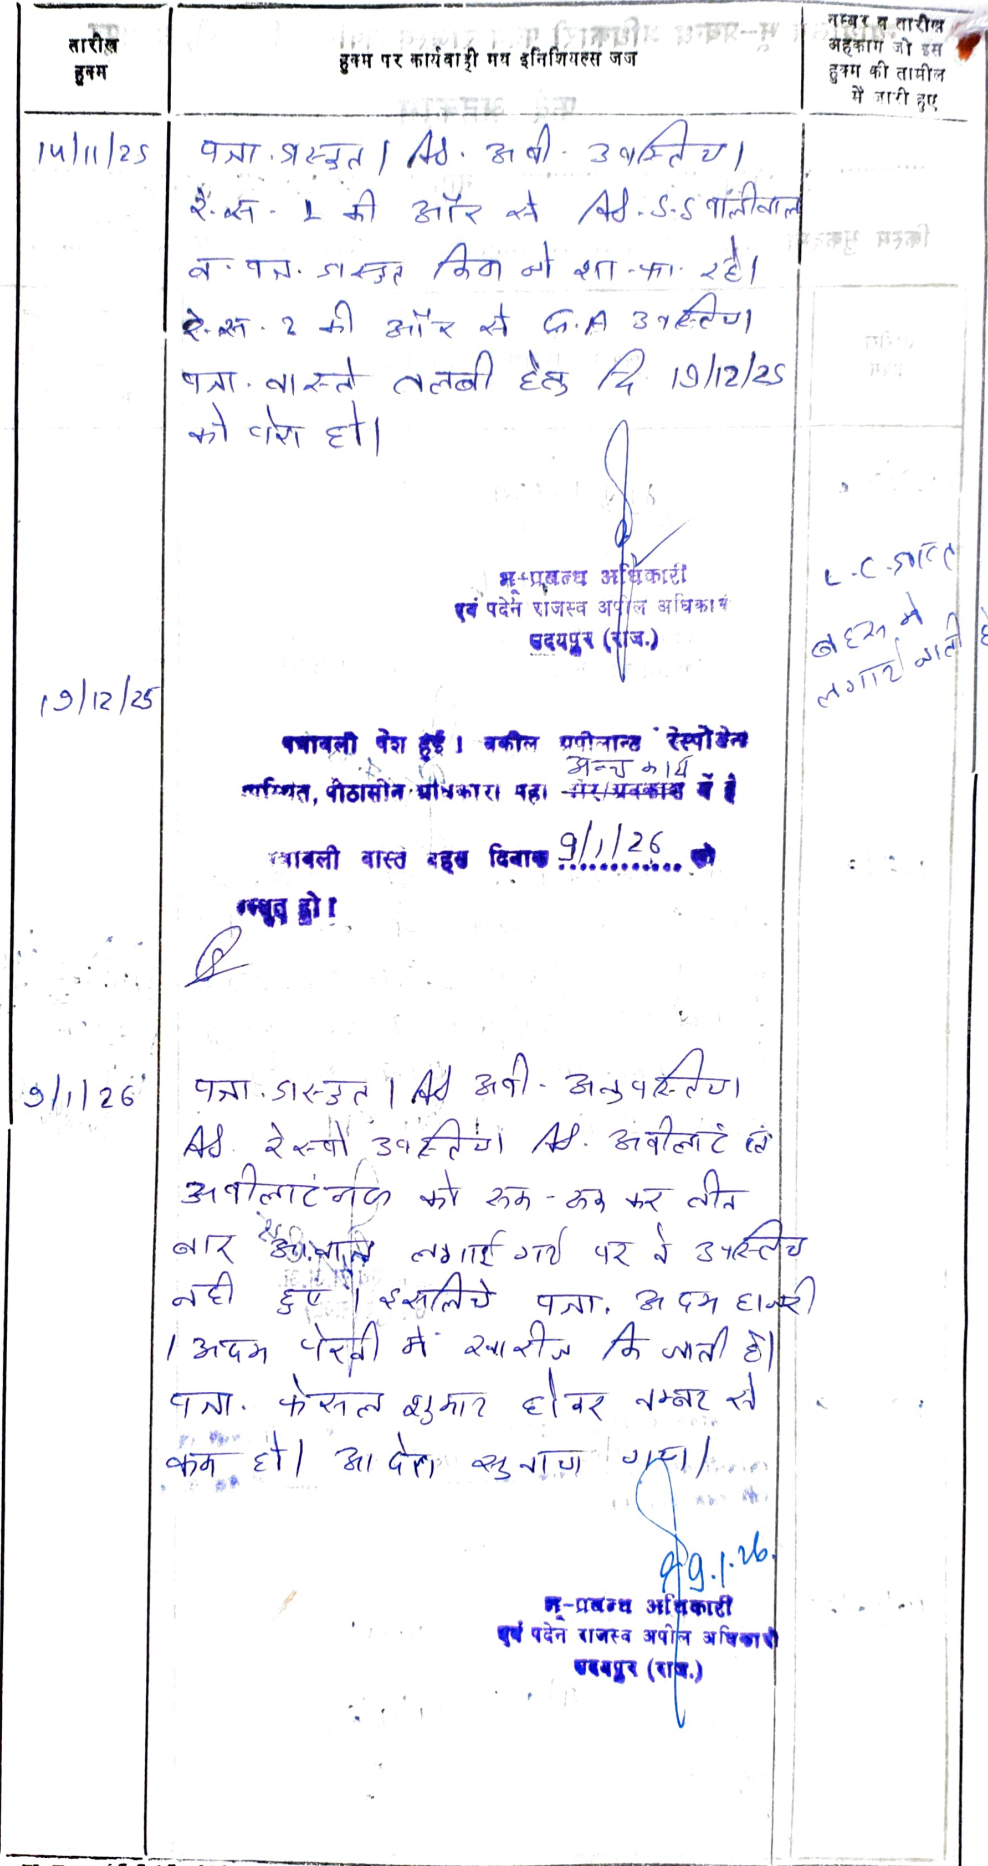 तारीख
हुक्म
हुक्म पर कार्यवाही मय इनिशियल्स जज
नम्बर व तारीख
अहकाम जो इस
हुक्म की तामील
में जारी हुए
14/11/25
पत्रा. प्रस्तुत। Ad. अपी. उपस्थित।
रे.स. 1 की ओर से Ad. S.S पालीवाल
व. पत्र. प्रस्तुत किया जो शा. फा. रहे।
रे.स. 2 की ओर से G.A उपस्थित।
पत्रा. वास्ते तलबी हेतु दि 19/12/25
को पेश हो।
भू-प्रबन्ध अधिकारी
एवं पदेन राजस्व अपील अधिकारी
उदयपुर (राज.)
L.C. प्राप्त
बहस में
लगाई जाती है
19/12/25
पत्रावली पेश हुई। वकील अपीलान्ट रेस्पोंडेन्ट
अन्य कार्य
उपस्थित, पीठासीन अधिकारी महो में है
पत्रावली वास्ते बहस दिनांक 9/1/26 को
प्रस्तुत हो।
9/1/26
पत्रा. प्रस्तुत। Ad अपी. अनुपस्थित।
Ad. रेस्पो उपस्थित। Ad. अपीलांट एवं
अपीलांटगण को एक-एक कर तीन
बार आवाज लगाई गई पर वे उपस्थित
नही हुए। इसलिये पत्रा. अदम हाजरी
/ अदम पेरवी में खारीज कि जाती है।
पत्रा. फेसल शुमार होकर नम्बर से
कम हो। आदेश सुनाया गया।
9.1.26.
भू-प्रबन्ध अधिकारी
एवं पदेन राजस्व अपील अधिकारी
उदयपुर (राज.)